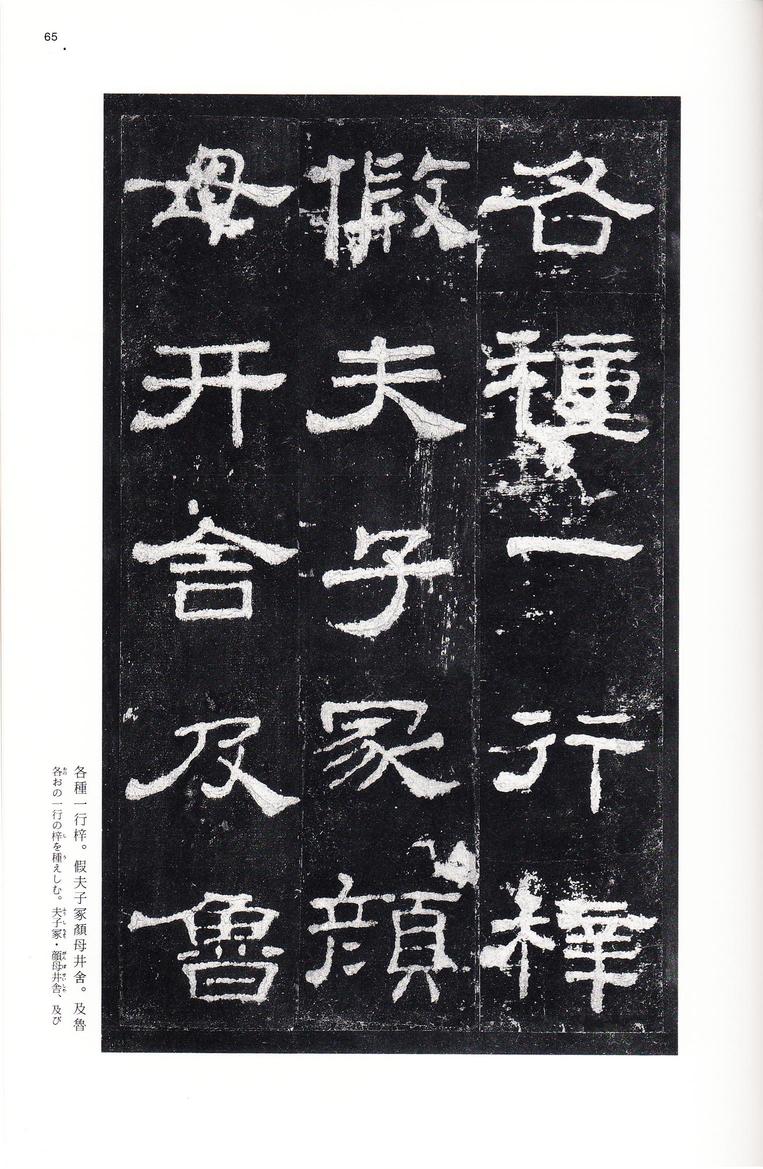 65
各種一行梓
假夫子冢顏
母井舍及魯
各種一行梓。假夫子冢顏母井舍。及魯
各おの一行の梓を種えしむ。夫子冢・顔母井舎、及び